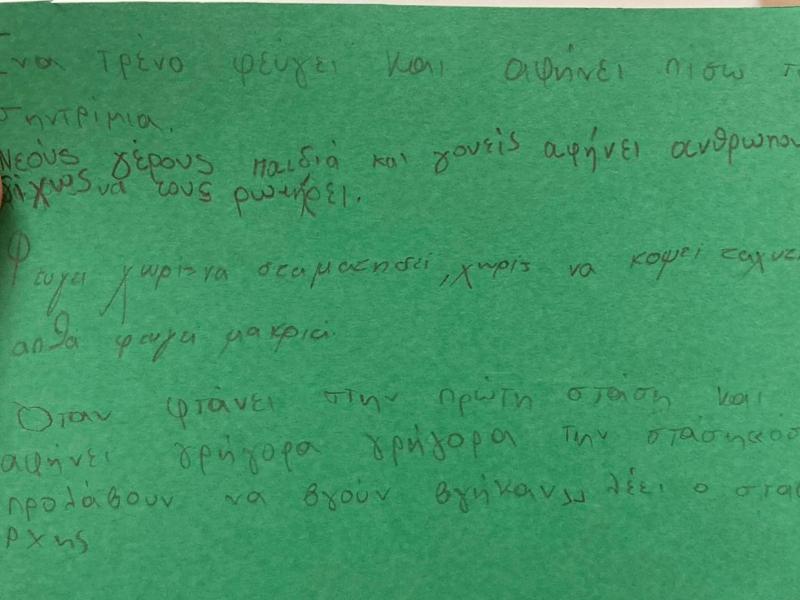 Ένα τρένο φεύγει και αφήνει πίσω τ
σηντρίμια.
Νεούς γέρους παιδιά και γονείς αφήνει ανθρωπου
δίχως να τους ρωτήσει.
Φευγει χωρις να σταματησει, χωρις να κοψει ταχυτ
απλα φευγει μακριά.
Όταν φτάνει στην πρώτη στάση και
αφήνει γρήγορα γρήγορα την στάση
προλάβουν να βγούν βγήκαν λέει ο στα
ρχης